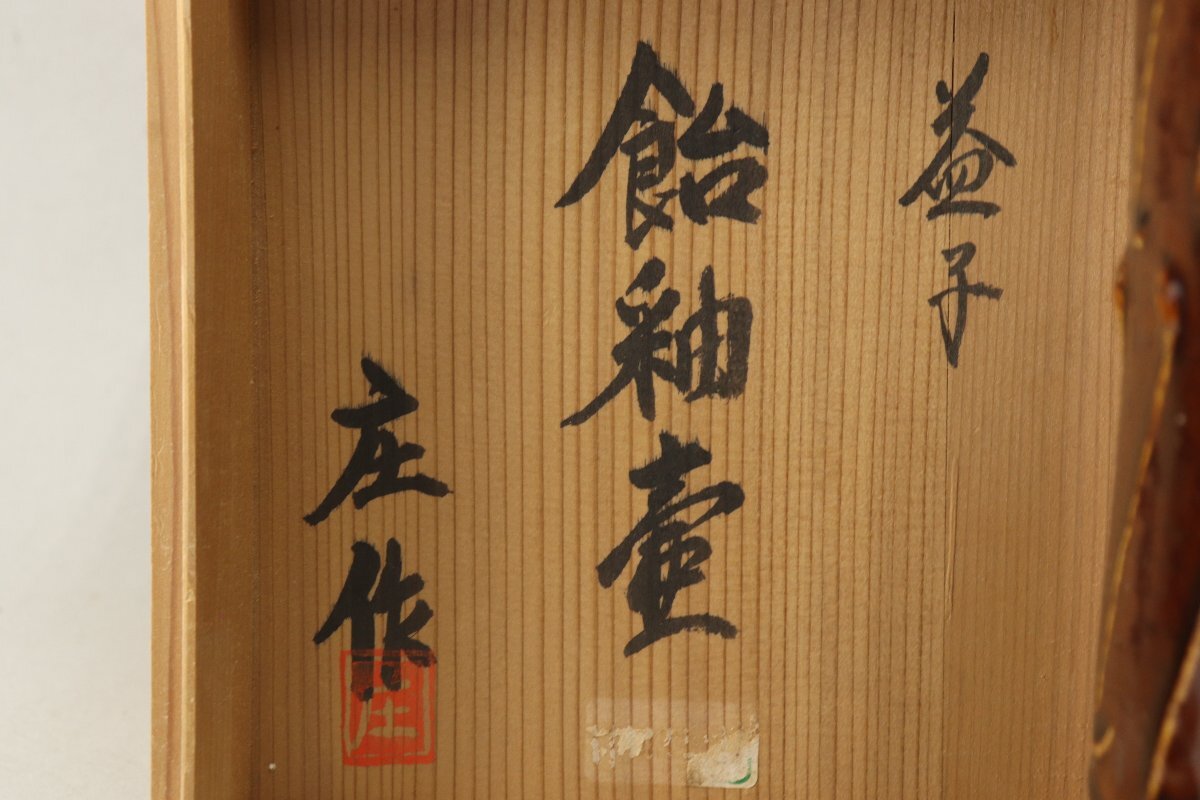 益子
飴釉壷
庄作
庄